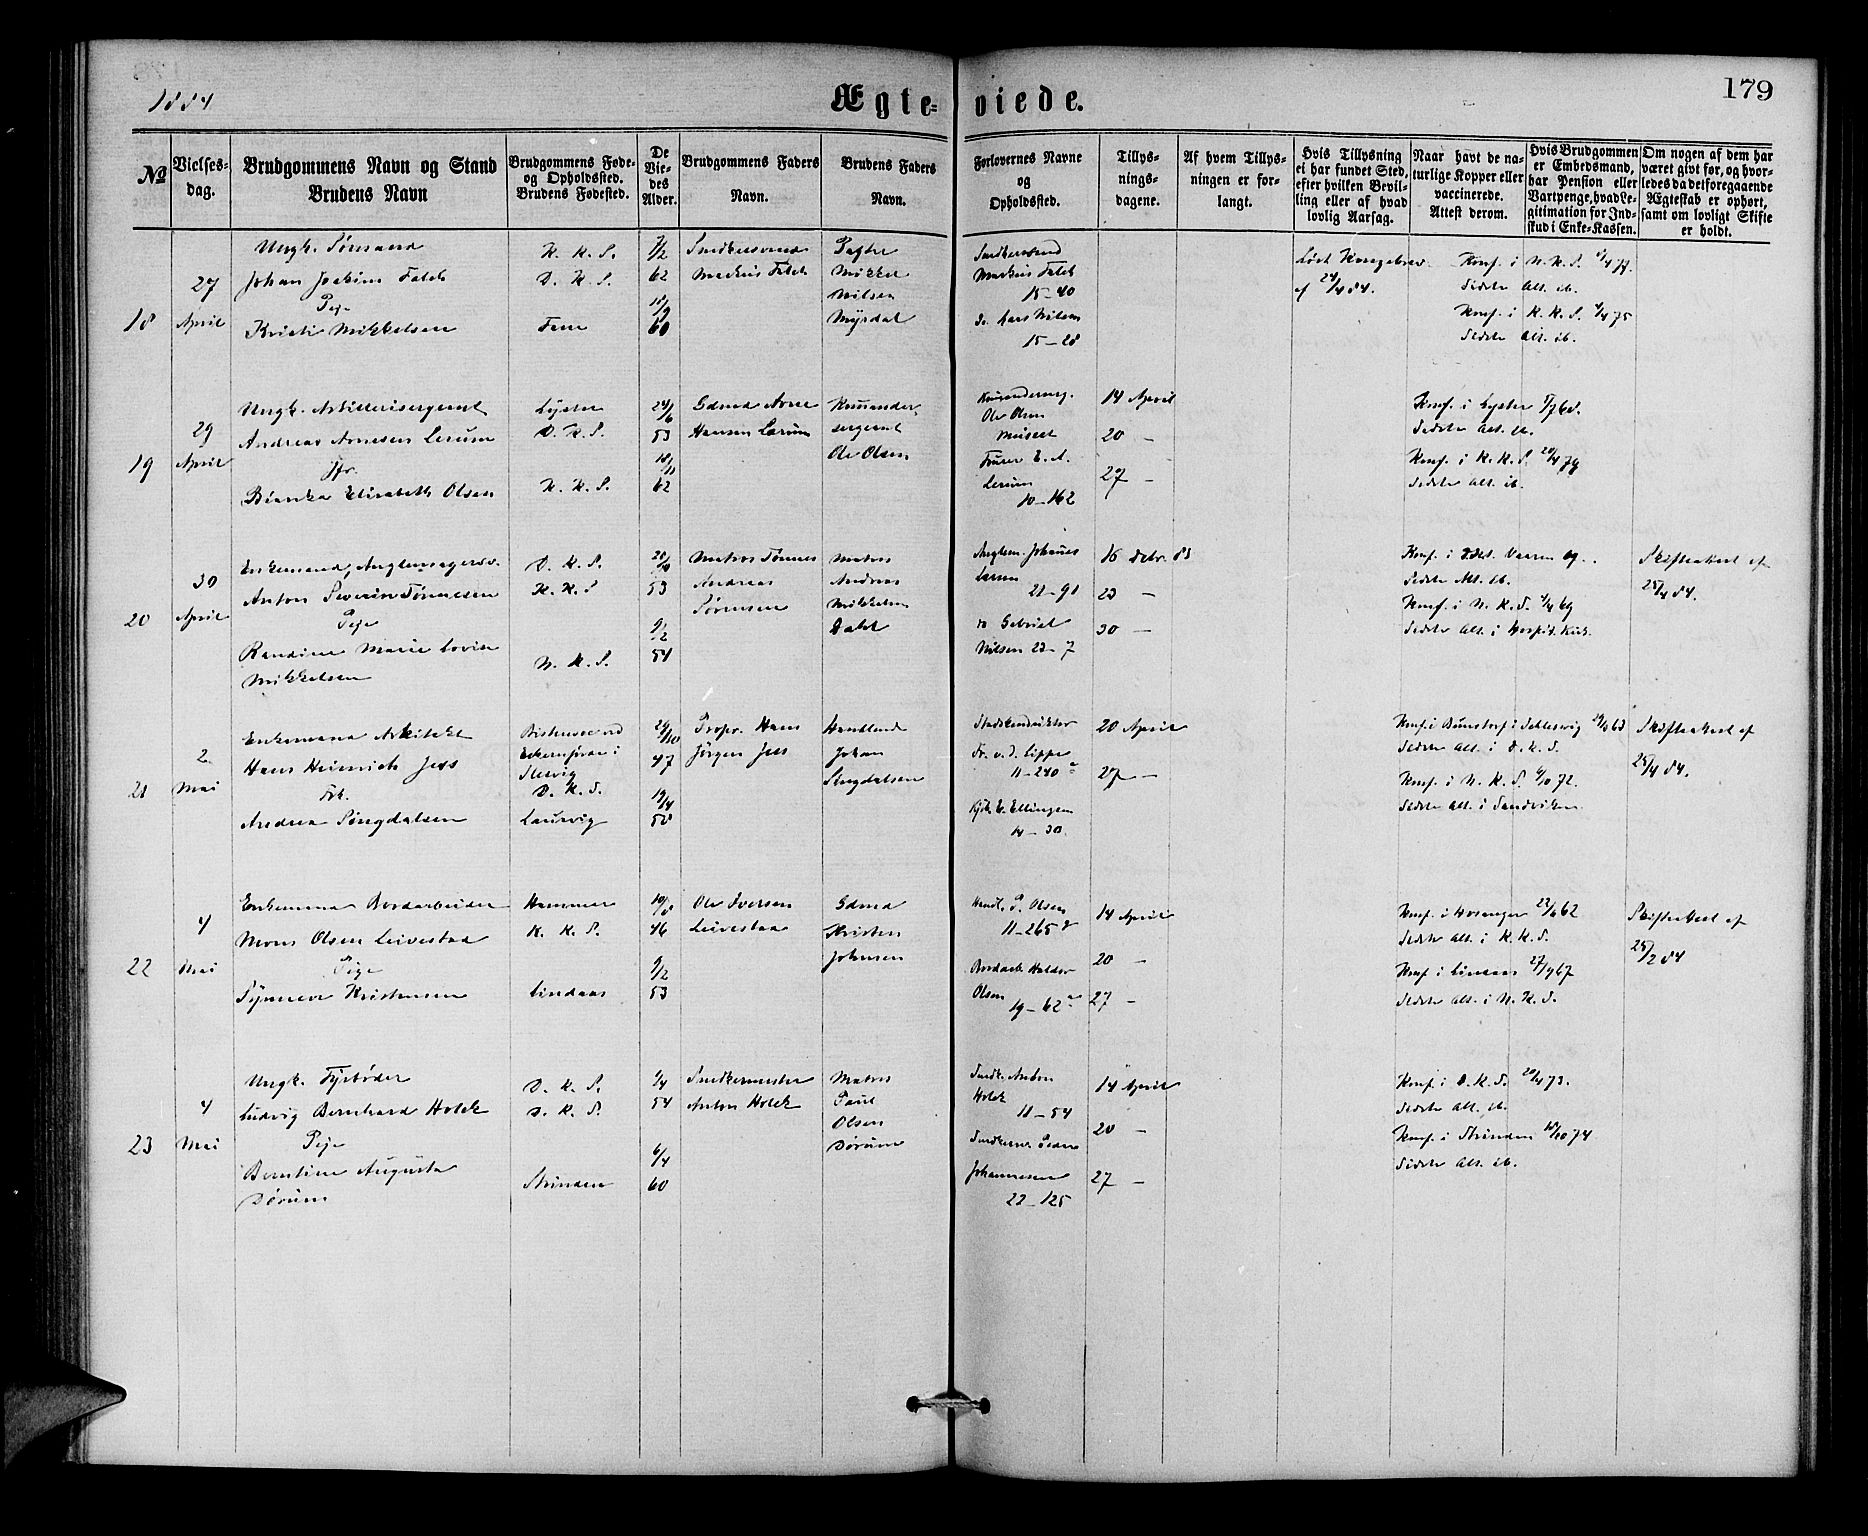 1884
Ægte-
viede.
179
№
Vielses-
dag.
Brudgommens Navn og Stand
Brudens Navn
Brudgommens Føde-
og Opholdssted.
Brudens Fødested.
De
Vie-
des
Alder.
Brudgommens Faders
Navn.
Brudens Faders
Navn.
Forlovernes Navne
og
Opholdssted.
Tillys-
nings-
dagene.
Af hvem Tillys-
ningen er for-
langt.
Hvis Tillysning
ei har fundet Sted,
efter hvilken Bevil-
ling eller af hvad
lovlig Aarsag.
Naar havt de na-
turlige Kopper eller
vaccinerede.
Attest derom.
Hvis Brudgommen
er Embedsmand,
har Pension eller
Vartpenge, hvad Le-
gitimation for Ind-
skud i Enke-Kassen.
Om nogen af dem har
været givt før, og hvor-
ledes da det foregaaende
Ægteskab er ophørt,
samt om lovligt Skifte
er holdt.
18
27
April
Ungk. Sømand
Johan Joakim Falch
Pige
Kristi Mikkelsen
K. K. S.
D. K. S.
Fane
62
60
Snedkersvend
Markus Falch
Mikkel
Nilsen
Myrdal
Snedkersvend
Markus Falch
15-40
Lars Nilsen
15-28
Løst Kongebrev
af 24/4 84.
Konf. i N. K. S.
Sidste Alt. ib.
Konf. i K. K. S.
Sidste Alt. ib.
19
29
April
Ungk. Artillerisergeant
Andreas Arnesen Lerum
Jfr.
Bianka Elisabeth Olsen
Lyster
D. K. S.
K. K. S.
24/6
53
18/11
62
Gdmd Arne
Hansen Lerum
sergeant
Ole Olsen
Ole Olsen
Museet
Lerum
10-162
14 April
20 -
27 -
Konf. i Lyster
Sidste Alt. ib.
Konf. i K. K. S. 20/4 79
Sidste Alt. ib.
20
30
April
Enkemand,
Anton Severin Tønnesen
Pige
Randine Marie Lovise
Mikkelsen
D. K. S.
K. K. S
N. K. S.
53
9/2
54
Matros Tønnes
Andreas
Sørensen
Matros
Andreas
Mikkelsen
Dahl
Johannes
Larsen
21-91
Gabriel
Nilsen 23-7
16 Debr. 83
23 -
30 -
Sidste Alt. ib.
Konf. i N. K. S. 69
Sidste Alt. i Hospit. Kirk.
Skifteattest af
25/4 84.
21
2
Mai
Enkemand Arkitekt
Hans Heinrich Jess
Frk.
Andrea Singdalsen
Eckernførde i
Slesvig
D. K. S.
Laurvig
29/10
47
19/4
50
Propr. Hans
Jørgen Jess
Johan
Singdalsen
Stadskonduktør
Fr. v. d. Lippe
11-240
E. Ellingsen
14-30
20 April
27 -
Konf. i Bunstorf i Schleswig 63
Sidste Alt. i D. K. S.
Konf. i N. K. S. 72.
Sidste Alt. i Sandviken
Skifteattest af
25/4 84.
22
4
Mai
Enkemand Bordarbeider
Mons Olsen Leivestad
Pige
Synneve Kristensen
Hammer
K. K. S.
Lindaas
10/8
46
9/2
53
Ole Iversen
Leivestad
Gdmd
Kristen
Johnsen
Handl. P. Olsen
11-265
Bordarb. Haldor
Olsen
19-62
14 April
20 -
27 -
Konf. i Hosanger 62
Sidste Alt. i K. K. S.
Konf. i Lindaas 67
Sidste Alt. i N. K. S.
Skifteattest af
25/2 84
23
4
Mai
Ungk. Fyrbøder
Ludvig Bernhard Holck
Pige
Berntine Augusta
Dørum
D. K. S.
D. K. S.
Strinden
54
6/4
60
Snedkermester
Anton Holck
Matros
Paul
Olsen
Dørum
Snedk. Anton
Holck
11-54
Johannesen
22-125
14 April
20 -
27 -
Konf. i D. K. S. 20/4 73.
Sidste Alt. ib.
Konf. i Strinden 74
Sidste Alt. ib.